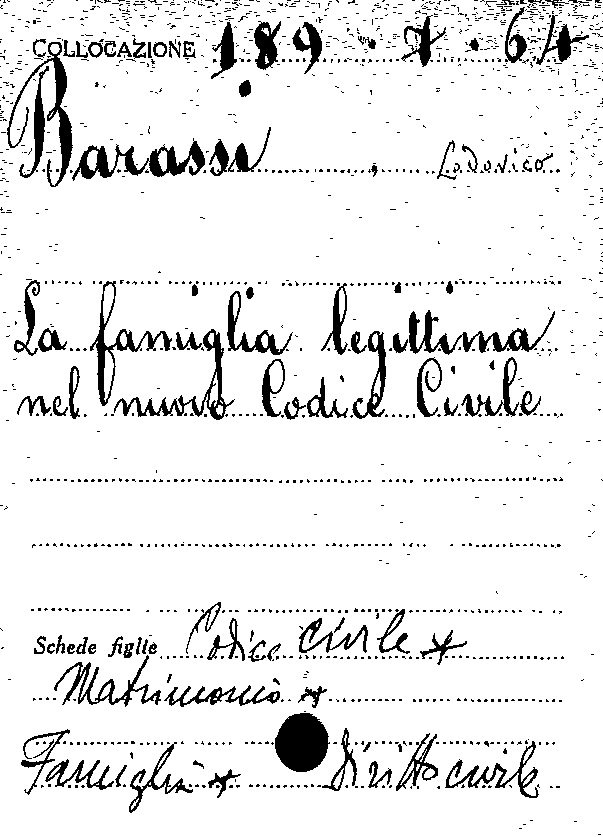 COLLOCAZIONE 189 . 7 . 64
Barassi , Lodovico
La famiglia legittima
nel nuovo Codice Civile
Schede figlie Codice civile *
Matrimonio *
Famiglia * Diritto civile